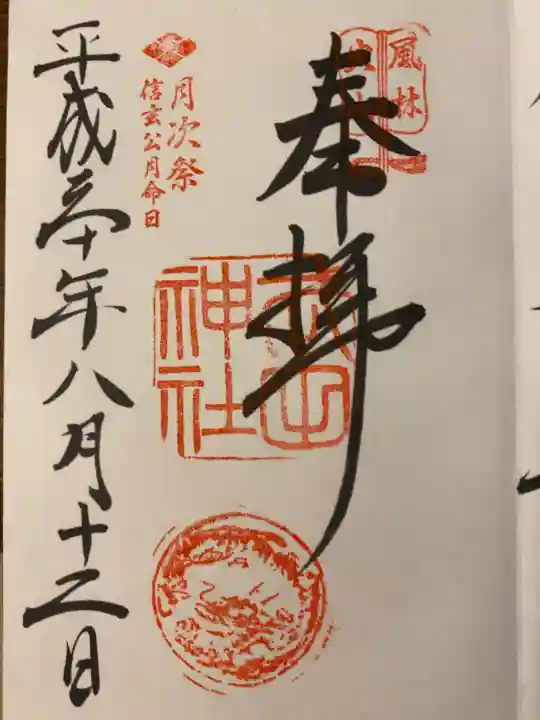 風林
火山
奉拝
武田
神社
月次祭
信玄公月命日
平成三十年八月十二日